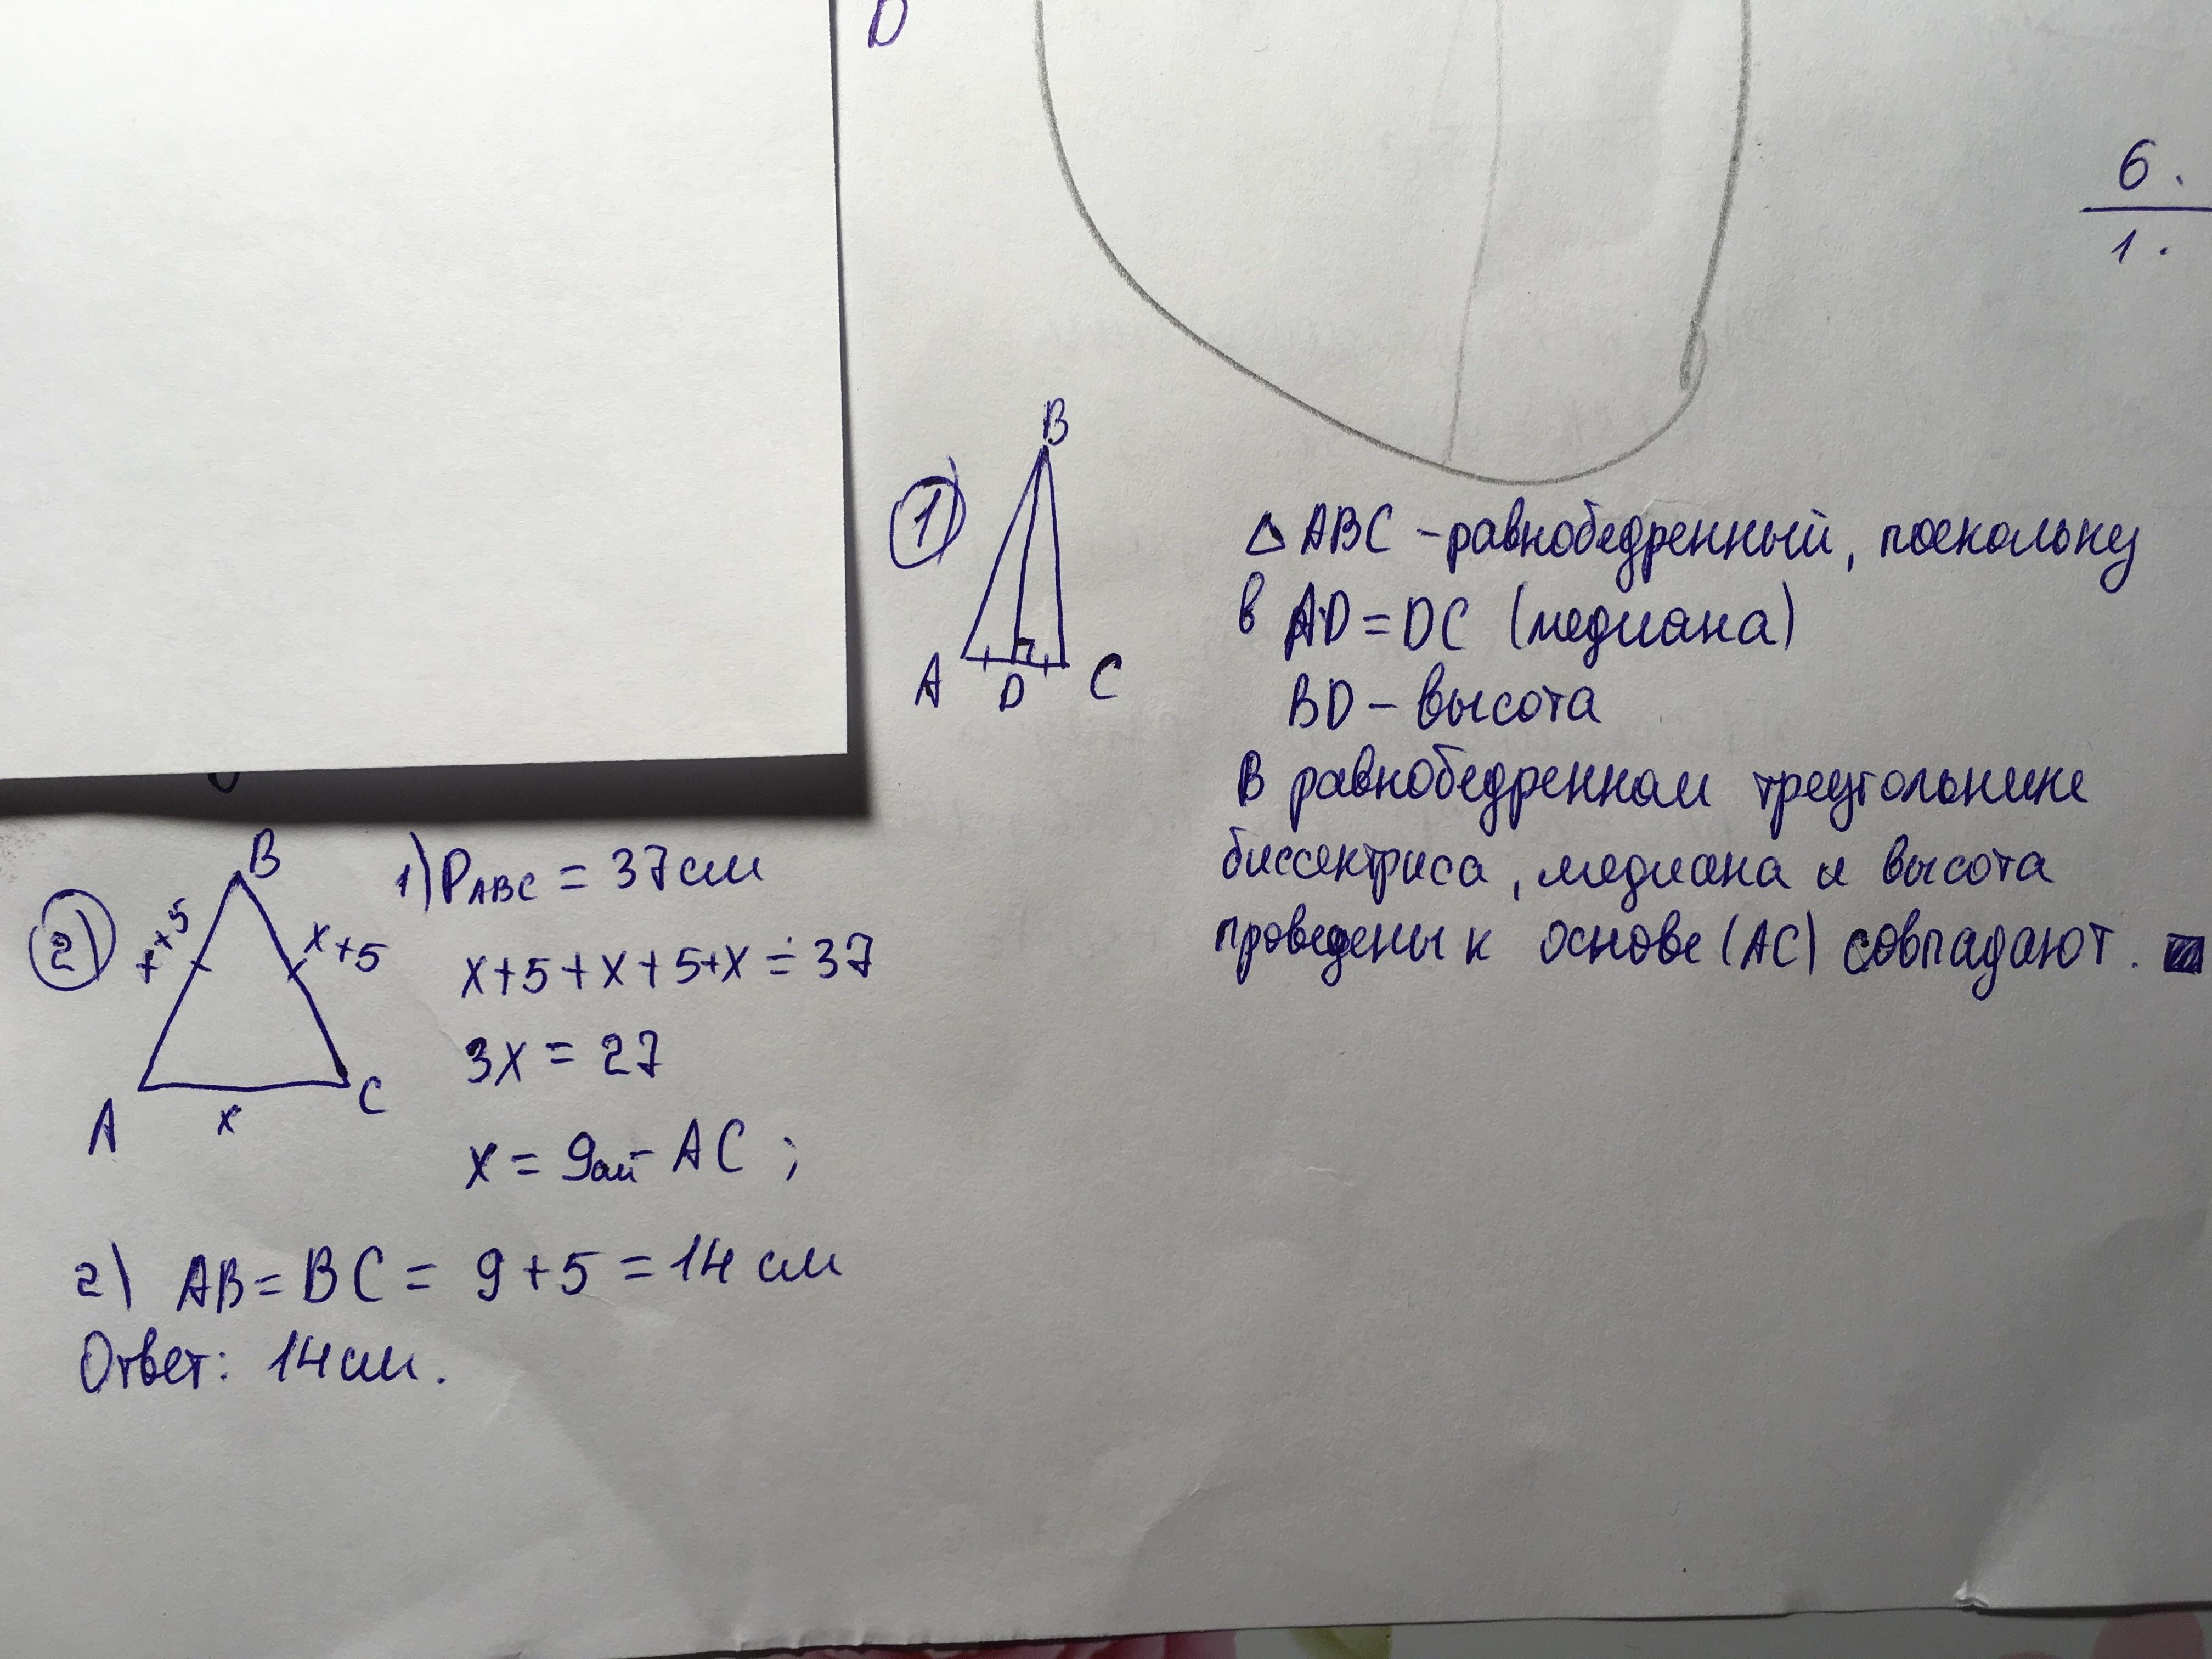 D
6.
1.
1)
B
A D C
△ ABC - равнобедренный, поскольку
в AD = DC (медиана)
BD - высота
В равнобедренном треугольнике
биссектриса, медиана и высота
проведены к основе (AC) совпадают.
2)
B
x+5
x+5
A
x
C
1) P ABC = 37 см
x+5+x+5+x = 37
3x = 27
x = 9 см - AC ;
2) AB = BC = 9 + 5 = 14 см
Ответ: 14 см.